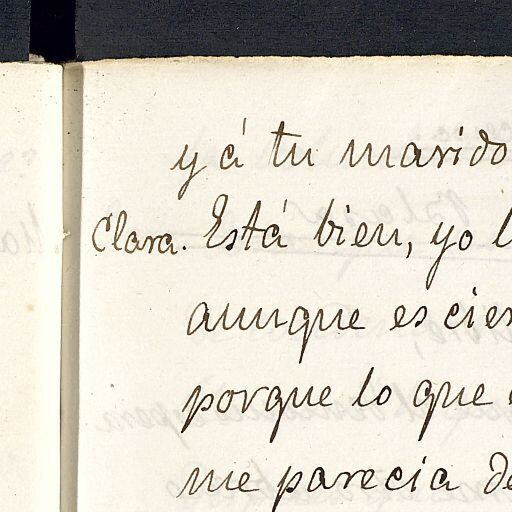 y á tu marido
Clara. Está bien, yo l
aunque es cier
porque lo que
me parecia de